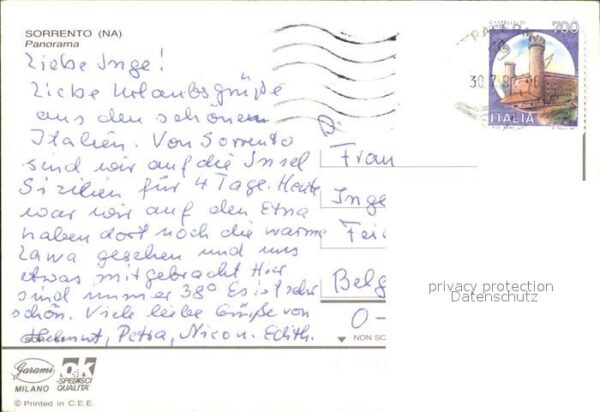 SORRENTO (NA)
Panorama
Liebe Inge!
Liebe Urlaubsgrüße
aus den schönen
Italien. Von Sorrento
sind wir auf die Insel
Sizilien für 4 Tage. Heute
war wir auf den Etna
haben dort noch die warme
Lawa gesehen und uns
etwas mitgebracht Hier
sind immer 38° Es ist sehr
schön. Viele liebe Grüße von
Helmut, Petra, Nico u. Edith.
CASTELLI D'
700
ITALIA
30.7
Frau
Inge
Belg
O-
NON SC
privacy protection
Datenschutz
Garami
MILANO
ok
SPEDISCI
QUALITÀ
© Printed in C.E.E.